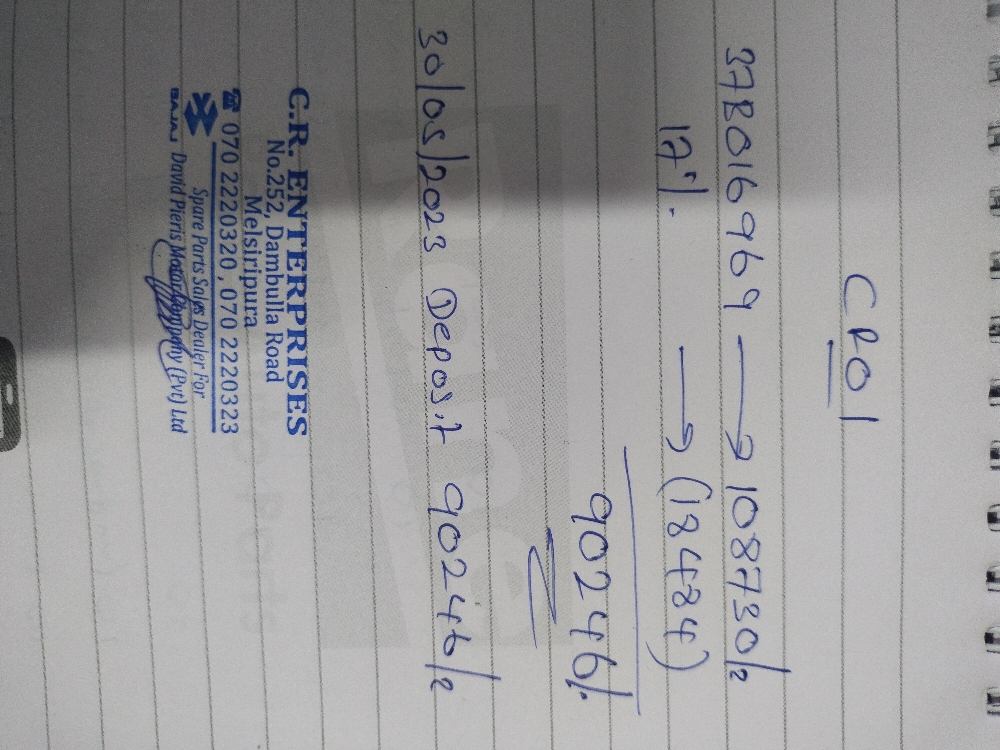 CR01
37B0169969 → 108730/=
17%. → (18484)
90246/.
30/05/2023 Deposit 90246/=
C.R. ENTERPRISES
No.252, Dambulla Road
Melsiripura
☎ 070 2220320, 070 2220323
Spare Parts Sales Dealer For
David Pieris Motor Company (Pvt) Ltd